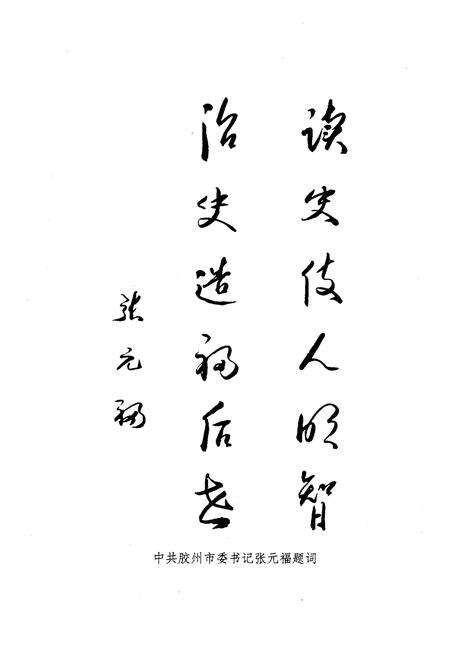 读史使人明智
治史造福后世
张元福
中共胶州市委书记张元福题词